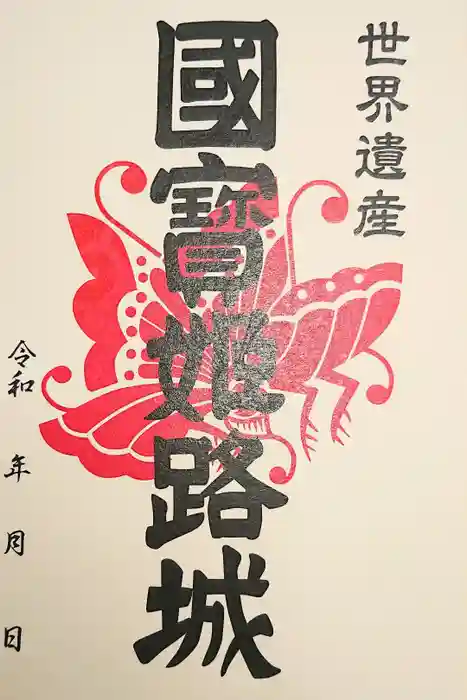 世界遺産
國寶姫路城
令和 年 月 日